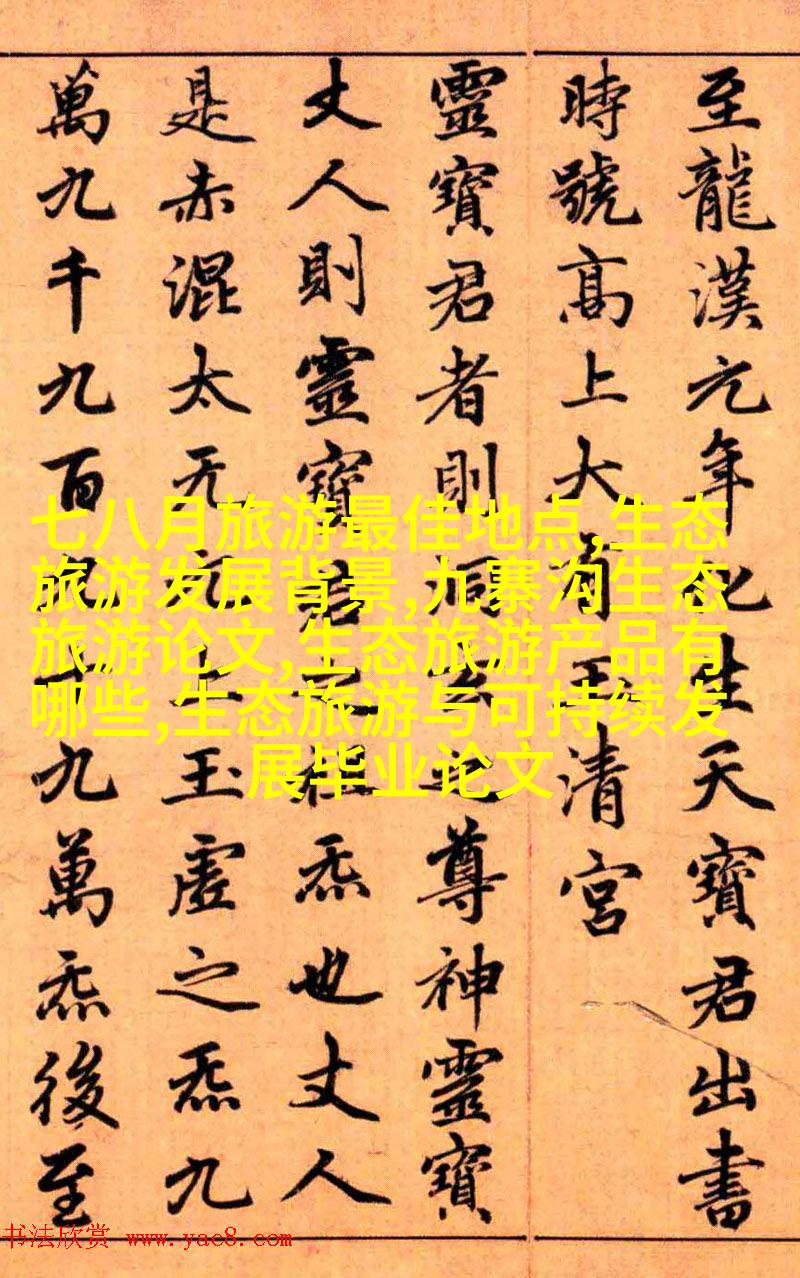 至龍漢元年化生天寶君出書
時號高上大有玉清宮
靈寶君者則洞玄之尊神靈寶
丈人則靈寶君之祖炁也丈人
是赤混太无元上玉虛之炁九
萬九千九百九十九萬炁後至
七八月旅游最佳地点,生态
旅游发展背景,九寨沟生态
旅游论文,生态旅游产品有
哪些,生态旅游与可持续发
展毕业论文
书法欣赏 www.yac8.com